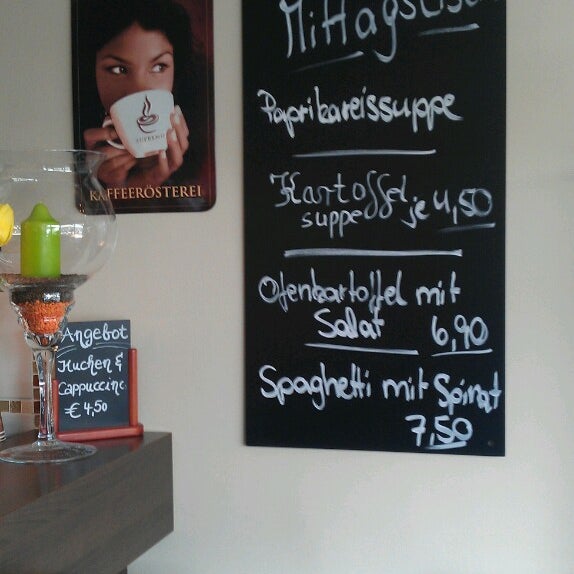 Mittagstisch
Paprikareissuppe
Kartoffel
suppe je 4,50
Ofenkartoffel mit
Salat 6,90
Spaghetti mit Spinat
7,50
SUPREMO
KAFFEERÖSTEREI
Angebot
Kuchen &
Cappuccino
€ 4,50